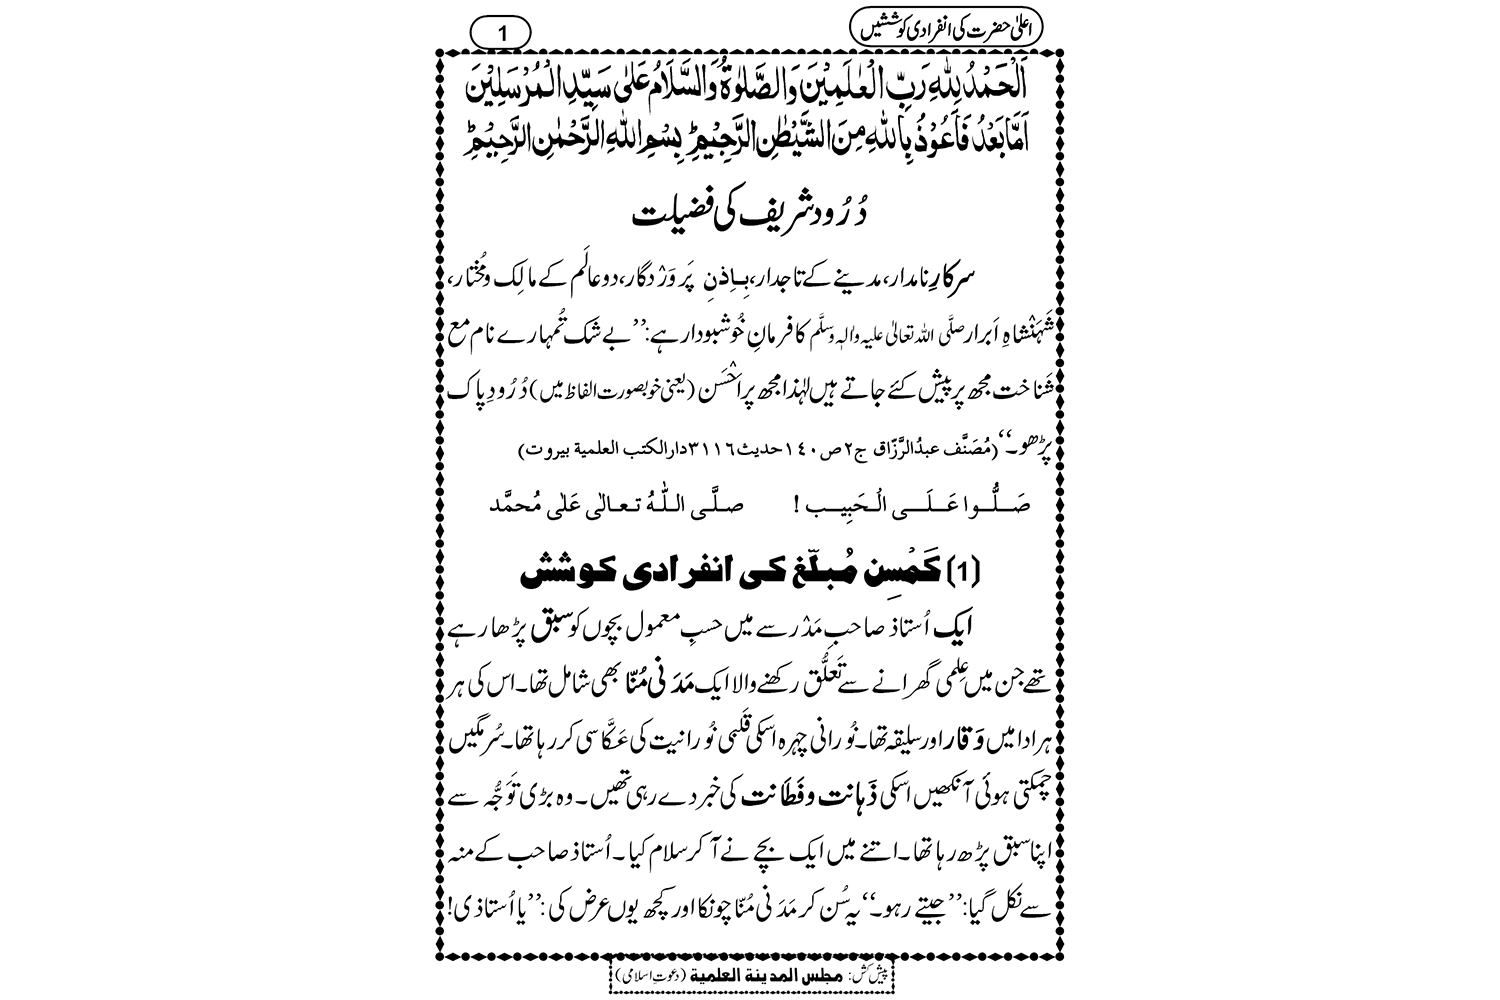 اعلیٰ حضرت کی انفرادی کوششیں
1
اَلْحَمْدُ لِلّٰہِ رَبِّ الْعٰلَمِیْنَ وَالصَّلٰوۃُ وَالسَّلَامُ عَلٰی سَیِّدِ الْمُرْسَلِیْنَ
اَمَّا بَعْدُ فَاَعُوْذُ بِاللّٰہِ مِنَ الشَّیْطٰنِ الرَّجِیْمِ ؕ بِسْمِ اللّٰہِ الرَّحْمٰنِ الرَّحِیْمِ ؕ
دُرُود شریف کی فضیلت
سرکارِ نامدار، مدینے کے تاجدار، بِاِذنِ پَروَرْدگار، دو عالَم کے مالِک و مُختار،
شَہَنْشاہِ اَبرار صلَّی اللہ تعالیٰ علیہ واٰلہٖ وسلَّم کا فرمانِ خُوشبودار ہے: ’’بے شک تُمہارے نام مع
شَناخت مجھ پر پیش کئے جاتے ہیں لہٰذا مجھ پر اَحْسَن (یعنی خوبصورت الفاظ میں) دُرُودِ پاک
پڑھو۔‘‘ (مُصَنَّف عبدُالرَّزّاق ج٢ ص١٤٠ حدیث٣١١٦ دارالکتب العلمیة بیروت)
صَلُّوا عَلَی الْحَبِیب ! صلَّی اللّٰہُ تعالٰی عَلٰی مُحمَّد
(1) کَمْسِن مُبلّغ کی انفرادی کوشش
ایک اُستاذ صاحب مَدْرسے میں حسبِ معمول بچوں کو سبق پڑھا رہے
تھے جن میں عِلمی گھرانے سے تَعَلُّق رکھنے والا ایک مَدَنی مُنّا بھی شامل تھا۔ اس کی ہر
ہر ادا میں وَقار اور سلیقہ تھا۔ نُورانی چہرہ اسکی قَلبی نُورانیت کی عَکَّاسی کر رہا تھا۔ سُرمگیں
چمکتی ہوئی آنکھیں اسکی ذَہانت و فَطانت کی خبر دے رہی تھیں۔ وہ بڑی تَوَجُّہ سے
اپنا سبق پڑھ رہا تھا۔ اتنے میں ایک بچے نے آ کر سلام کیا۔ اُستاذ صاحب کے منہ
سے نکل گیا: ’’جیتے رہو۔‘‘ یہ سُن کر مَدَنی مُنّا چونکا اور کچھ یوں عرض کی: ’’یا اُستاذی!
پیش کش: مجلس المدینة العلمیة (دعوتِ اسلامی)